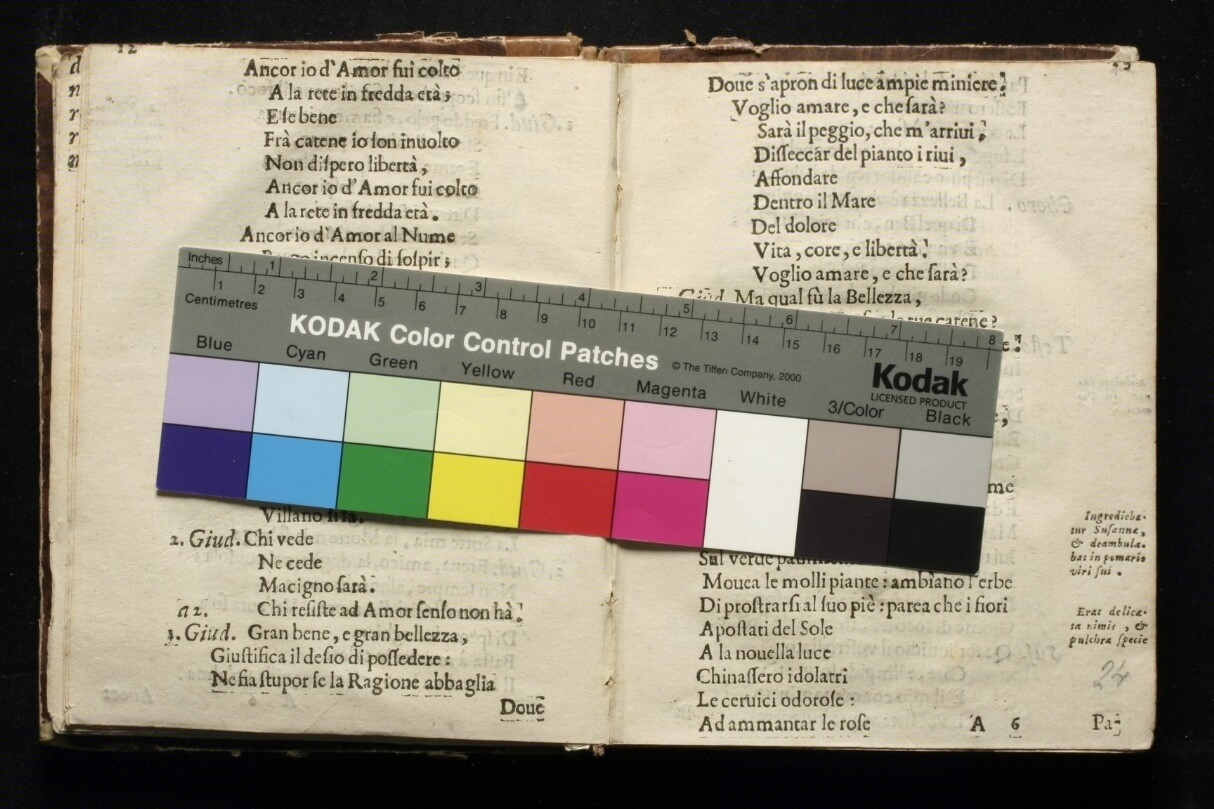 12
Ancor io d'Amor fui colto
A la rete in fredda età;
E se bene
Frà catene io son inuolto
Non dispero libertà,
Ancor io d'Amor fui colto
A la rete in fredda età.
Ancor io d'Amor al Nume
incenso di sospir;
Villano
2. Giud. Chi vede
Ne cede
Macigno sarà.
a 2. Chi resiste ad Amor senso non hà.
1. Giud. Gran bene, e gran bellezza,
Giustifica il desio di possedere:
Ne sia stupor se la Ragione abbaglia
Doue
Doue s'apron di luce ampie miniere.
Voglio amare, e che sarà?
Sarà il peggio, che m'arriui;
Disseccar del pianto i riui,
Affondare
Dentro il Mare
Del dolore
Vita, core, e libertà.
Voglio amare, e che sarà?
Giud. Ma qual fù la Bellezza,
le tue catene?
me
Sul verde
Moua le molli piante: ambiano l'erbe
Di prostrarsi al suo piè: parea che i fiori
Apostati del Sole
A la nouella luce
Chinassero idolatri
Le ceruici odorose:
Ad ammantar le rose
A 6
Pa-
Ingredieba-
tur Susanna,
& deambula-
bat in pomario
viri sui.
Erat delica-
ta nimis, &
pulchra specie
24
Inches 1 2 3 4 5 6 7 8
Centimetres 1 2 3 4 5 6 7 8 9 10 11 12 13 14 15 16 17 18 19
KODAK Color Control Patches
© The Tiffen Company, 2000
Kodak
LICENSED PRODUCT
Blue Cyan Green Yellow Red Magenta White 3/Color Black